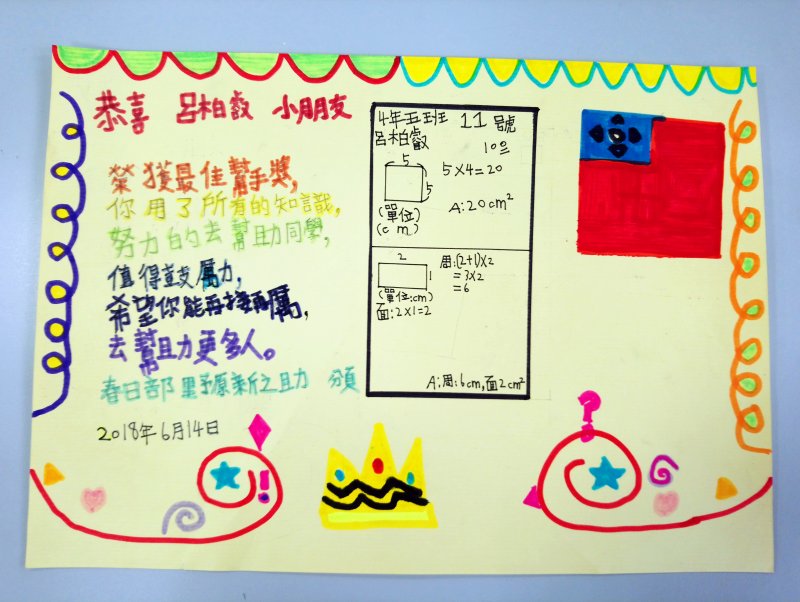 恭喜 呂柏叡 小朋友
榮獲最佳幫手獎,
你用了所有的知識,
努力的去幫助同學,
值得鼓厲力,
希望你能再接再厲,
去幫助更多人。
春日部野原新之助 頒
2018年6月14日
4年五班 11號
呂柏叡
5
5×4=20
5
(單位)
(cm)
A:20cm²
2
周:(2+1)×2
1
=3×2
=6
(單位:cm)
面:2×1=2
A:周:6cm,面2cm²
!
?